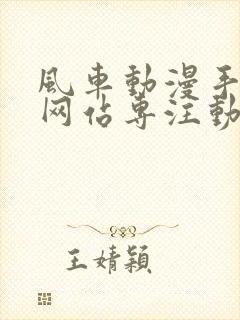 風車動漫手
网佔專注動
王婧穎